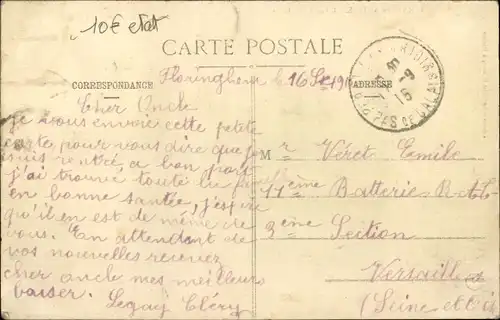 10€ etat
CARTE POSTALE
CORRESPONDANCE
ADRESSE
Floringhem le 16 Sept 191
Cher Oncle
Je vous envoie cette petite
carte pour vous dire que je
suis rentré a bon port
j'ai trouvé toute la
en bonne santée, j'espère
qu'il en est de même de
vous. En attendant de
vos nouvelles recever
cher oncle mes meilleurs
baiser. Legay Cléry
Mr Véret Emile
11ème Batterie
3ème Section
Versailles
(Seine et Oise
PAS DE CALAIS